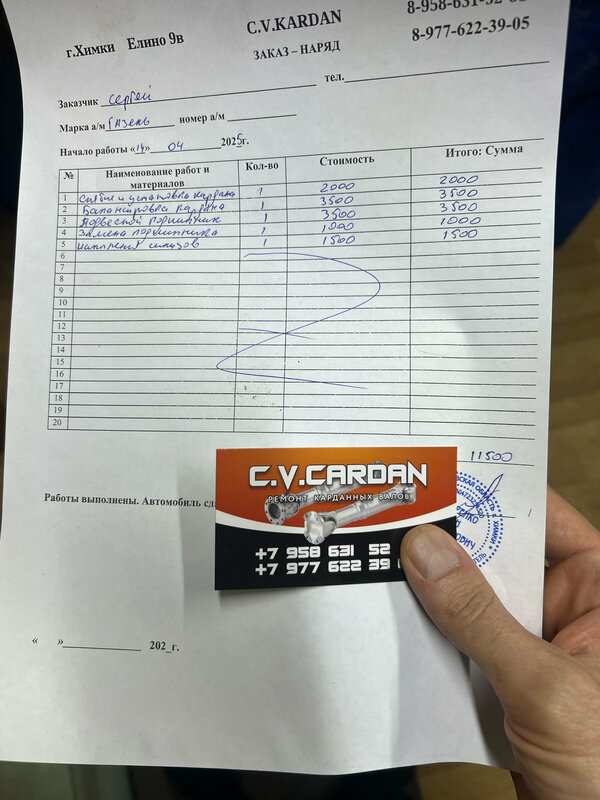 C.V.KARDAN
г.Химки Елино 9в
8-977-622-39-05
ЗАКАЗ – НАРЯД
Заказчик Сергей тел.
Марка а/м Газель номер а/м
Начало работы «14» 04 2025г.
№ Наименование работ и материалов Кол-во Стоимость Итого: Сумма
1 снятие и установка кардана 1 2000 2000
2 Балансировка кардана 1 3500 3500
3 Подвесной подшипник 1 3500 3500
4 Замена подшипника 1 1000 1000
5 1 1500 1500
6
7
8
9
10
11
12
13
14
15
16
17
18
19
20
11500
Работы выполнены. Автомобиль
C.V.CARDAN
РЕМОНТ КАРДАННЫХ ВАЛОВ
+7 958 631 52
+7 977 622 39
« » 202_г.